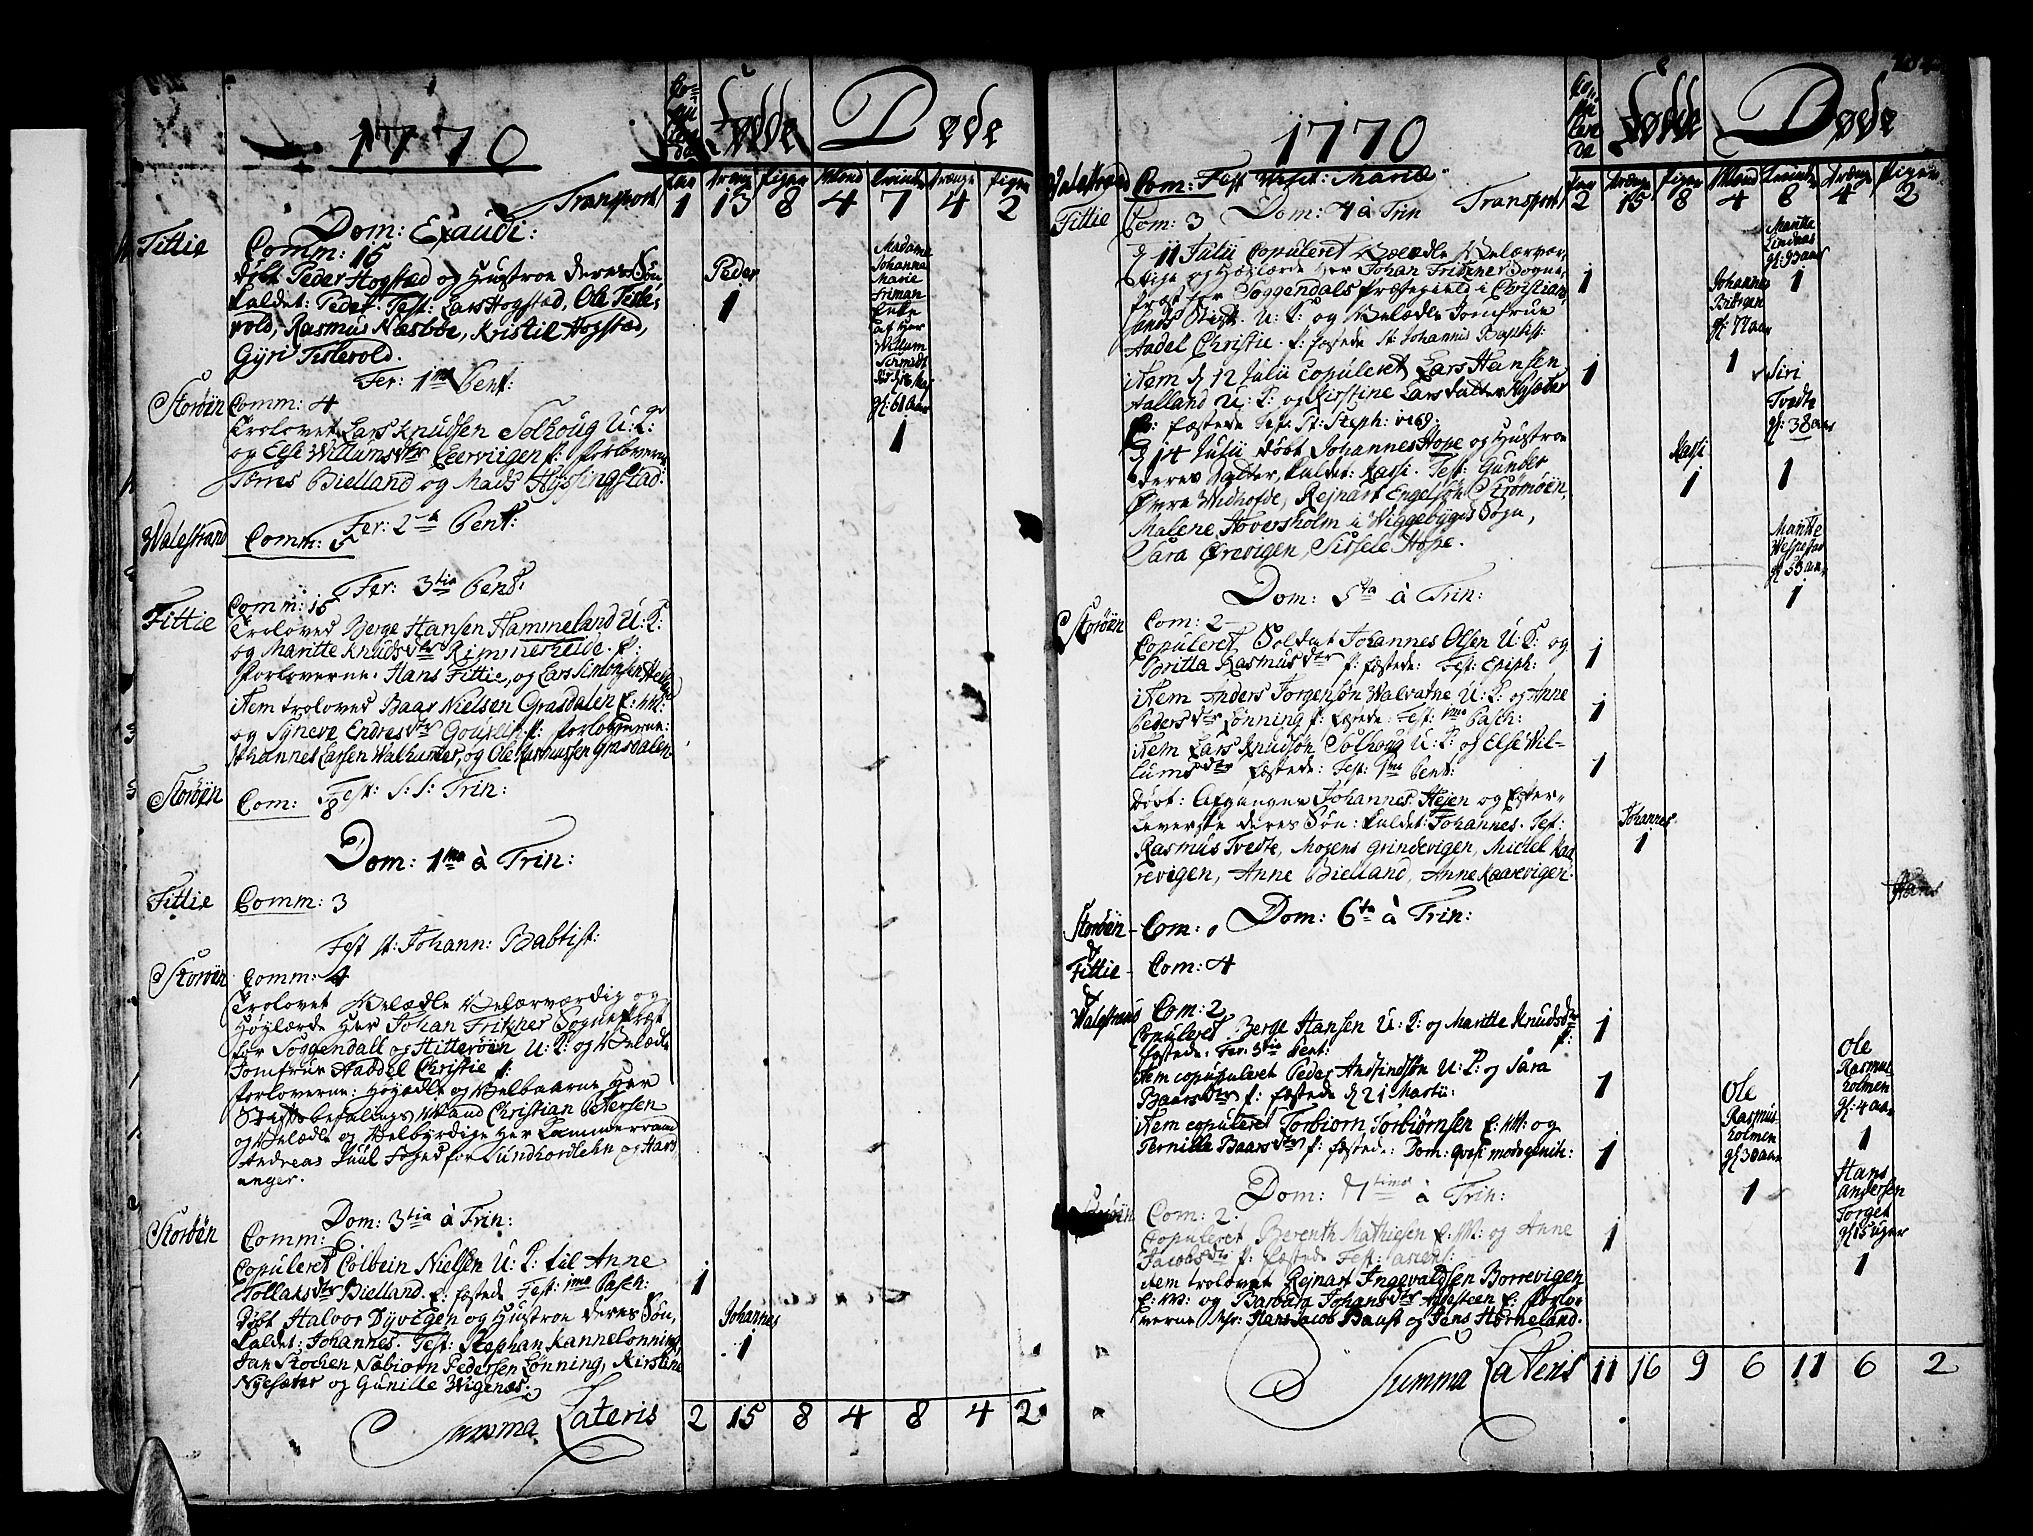 1770
Fødde
Døde
Mand
Transport 1 13 8 4 7 4 2
Dom: Exaudi:
Fittie
Comm: 15
Døbt Peder Hogstad og Hustroe deres Søn
kaldet: Peder. Test: Lars Hogstad, Ole Tisle-
vold, Rasmus Næsbøe, Kristil Hogstad,
Gyri Tislevold.
Peder
1
Madame
Johanna
Marie
Friman
Enke
af Her
Willum
Schmidt
gl: 61 aar
1
Fer: 1ma Pent:
Storöen Comm: 4
Trolovet Lars Knudsen Solhoug U: K:
og Else Willumsdtr Leerviigen p: forloverne
Torres Bielland og Mads Hyssingstad:
Fer: 2da Pent:
Walestrand Comm: 5
Fer: 3tia Pent:
Comm: 15
Fittie
Troloved Berge Hansen Hammeland U: K:
og Maritte Knudsdtr Rimmereide. p:
Forloverne: Hans Fittie, og Lars Simonsen
item troloved Baar Nielsen Grasdalen E: M:
og Synneve Endresdtr p: forloverne:
Johannes Larsen Walhumer, og Ole Rasmussen Grasdalen
Fest: S: S: Trin:
Storöen Com: 8
Dom: 1ma à Trin:
Fittie Comm: 3
Fest St: Johann: Babtist:
Storöen Comm: 4
Trolovet Velædle Velærværdig og
Høylærde Her Johan Fritzner Sognepræst
for Soggendall og Hitterøen U: K: og Velædle
Jomfrue Aadel Christie p:
forloverne: Høyædle og Velbaarne Her
Stiftsbefalings Mand Christian Petersen
og Velædle og Velbyrdige Her Cammerraad
Andreas Juul Foged for Sundhordlehn og Hard
anger.
Dom: 3tia à Trin:
Storöen Comm: 6
Copuleret Colbein Nielsen U: K: til Anne
Tollaksdtr Bielland. p: fæstede Fest: 1ma Pasch:
1
Døbt Halvor Dyvegen og Hustroe deres Søn,
kaldet: Johannes. Test: Stephan Kannelønning,
Jan Stochen Tobiorn Pedersen Lønning, Kirstine
Nysæter og Gunille Wigenæs.
Johannes
1
Summa Lateris 2 15 8 4 8 4 2
1770
Fødde
Døde
Walestrand Com: Fest Visit: Mariæ.
Transport 2 15 8 4 8 4 2
Fittie Com: 3 Dom: 4 à Trin
d 11 Julii Copuleret Velædle Velærvær-
dige og Høylærde Her Johan Fritzner Sogne-
præst for Soggendals Præstegield i Christian
sands Stift. U: K: og Velædle Jomfrue
Aadel Christie. p: fæstede St: Johannis Baptist:
1
item d 12 Julii copuleret Lars Hansen
Aalland U: K: og Kirstine Larsdatter Nysæter
p: fæstede Fest: St: Steph: 1769:
1
d 14 Julii døbt Johannes Hope og Hustroe
deres Datter, kaldet: Rassi. Test: Gunder
Øvre Widhofde, Rejnart Engelsøn Strømøen,
Malene Hoversholm i Wiggebygds Sogn,
Sara Ørevigen, Sissele Hope.
Rassi
1
Johannes
gl: 77 aar
1
Maritte
Lindaas
gl: 93 aar
1
Siri
Tvedte
gl: 38 aar
1
Maritte
gl: 53 aar
1
Dom: 5ta à Trin:
Storöen Com: 2
Copuleret Soldat Johannes Olsen U: K: og
Britta Rasmusdtr p: fæstede: Fest: Epiph:
1
item Anders Torgersøn Walvatne U: K: og Anne
Pedersdtr Lønning p: fæstede: Fest: 1ma Pasch:
1
item Lars Knudsøn Solhoug U: K: og Else Wil-
lumsdtr fæstede: Fest: 1ma Pent:
1
Døbt: Afgangen Johannes Hejen og Efter-
leverske deres Søn: kaldet: Johannes. Test:
Rasmus Tvedte, Mogens Grindevigen, Michel Kaa
revigen, Anne Bielland, Anne Kaarevigen.
Johannes
1
Hans
Dom: 6ta à Trin:
Storöen Com: 0
&
Fittie Com: 4
&
Walestrand Com: 2
Copuleret Berge Hansen U: K: og Maritte Knudsdtr
fæstede: Fer: 3tia Pent: p:
1
item copuleret Peder Andfindsøn U: K: og Sara
Baarsdtr p: fæstede d 21 Martii:
1
item copuleret Torbiorn Torbiørnsen E: M: og
Pernille Baarsdtr p: fæstede: Dom: qvasi modogenit:
1
Ole
Rasmus
Holmen
gl: 30 aar
1
Ole
Rasmus
Holmen
gl: 4 aar
1
Hans
Andersen
Torget
gl: 15 uger
1
Dom: 7tima à Trin:
Storöen Com: 2:
Copuleret Berenth Mathiesen E: M: og Anne
Jacobsdtr p: fæstede Fest:
1
item trolovet Rejnart Ingevaldsen Borrevigen
E: M: og Barbara Johansdtr p: forlo-
verne Hans Jacob Baust og Jens Horneland.
Summa Lateris 11 16 9 6 11 6 2